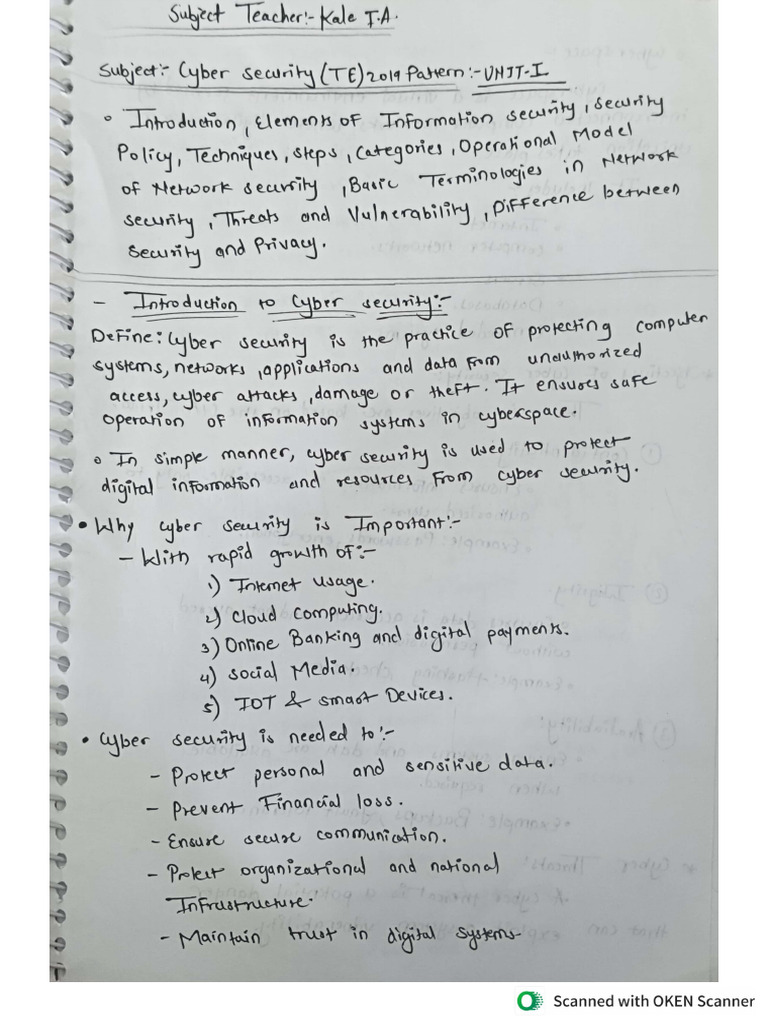 Subject Teacher:- Kale I.A.
Subject:- Cyber security (TE) 2019 Pattern:- UNIT-I
Introduction, Elements of Information security, security
Policy, Techniques, steps, Categories, Operational Model
of Network security, Basic Terminologies in Network
security, Threats and Vulnerability, Difference between
Security and Privacy.
- Introduction to Cyber security:-
Define: Cyber security is the practice of protecting computer
systems, networks, applications and data from unauthorized
access, cyber attacks, damage or theft. It ensures safe
operation of information systems in cyberspace.
In simple manner, cyber security is used to protect
digital information and resources from cyber security.
• Why cyber security is Important:-
- With rapid growth of:-
1) Internet usage.
2) Cloud computing.
3) Online Banking and digital payments.
4) Social Media.
5) IOT & smart Devices.
• Cyber security is needed to:-
- Protect personal and sensitive data.
- Prevent Financial loss.
- Ensure secure communication.
- Protect organizational and national
Infrustructure.
- Maintain trust in digital systems.
Scanned with OKEN Scanner